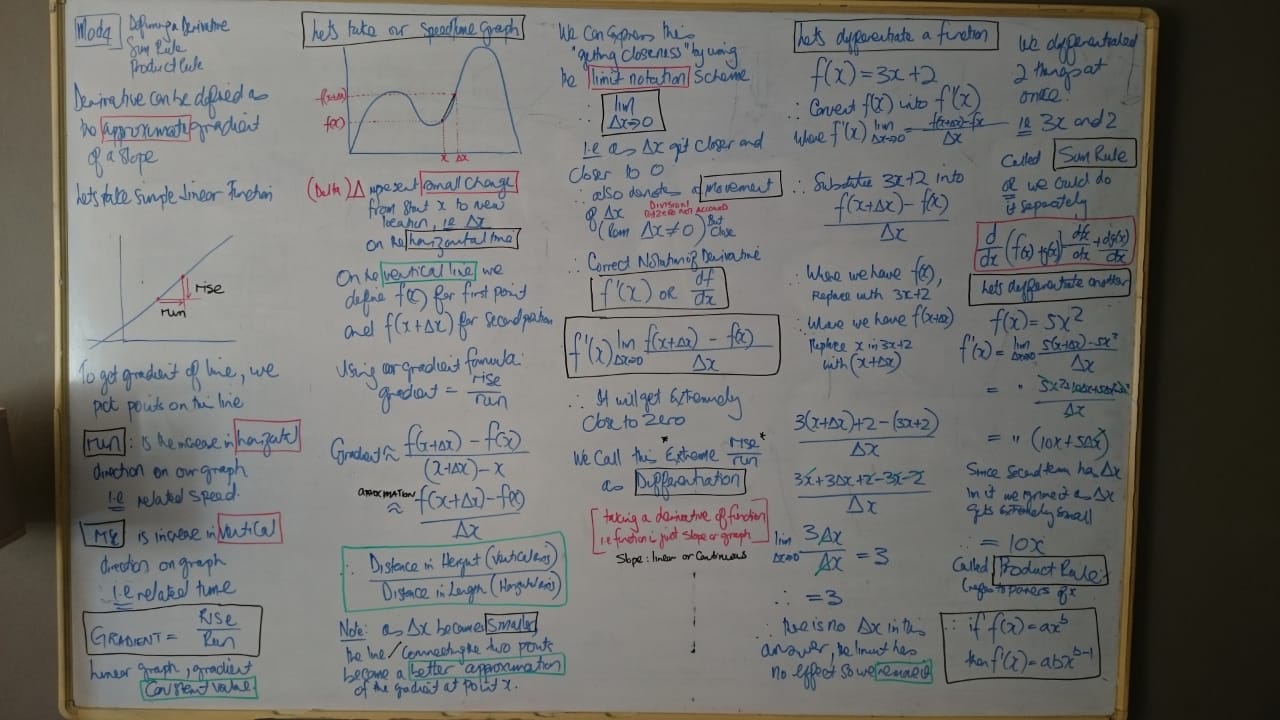 Mod2
Defining a Derivative
Sum Rule
Product Rule
Derivative can be defined as
the approximate gradient
of a slope
Lets take simple linear Function
rise
run
To get gradient of line, we
pick points on the line
run: is the increase in horizontal
direction on our graph
i.e related speed.
is increase in vertical
direction on graph
i.e related time
GRADIENT = Rise
Run
linear graph, gradient
Constant value
Lets take our Speedtime Graph
f(x+Δx)
f(x)
x Δx
(Delta) Δ represent small change
from start x to new
location, i.e Δx
on the horizontal line
On the vertical line we
define f(x) for first point
and f(x+Δx) for second position
Using our gradient formula:
gradient = rise
run
Gradient ≈ f(x+Δx) - f(x)
(x+Δx) - x
≈ f(x+Δx) - f(x)
Δx
∴ Distance in Height (Vertical axis)
Distance in Length (Horizontal axis)
Note: as Δx becomes smaller,
the line / connecting the two points
become a better approximation
of the gradient at point x.
We can express this
"getting closeness" by using
the limit notation scheme
∴ lim
Δx→0
i.e as Δx get closer and
closer to 0
∴ also denotes a movement
of Δx
DIVISION
BY ZERO NOT ALLOWED
(lim Δx≠0) But
close
∴ Correct Notation of Derivative
f'(x) OR df
dx
f'(x) lim f(x+Δx) - f(x)
Δx→0 Δx
∴ It will get Extremely
Close to zero
We Call this *Extreme rise*
run
as Differentiation
[taking a derivative of function
i.e function is just slope or graph]
Slope: linear or Continuous
Lets differentiate a function
f(x) = 3x+2
∴ Convert f(x) into f'(x)
Where f'(x) lim = f(x+Δx)-f(x)
Δx→0 Δx
∴ Substitute 3x+2 into
f(x+Δx) - f(x)
Δx
∴ Where we have f(x),
Replace with 3x+2
∴ Where we have f(x+Δx)
Replace x in 3x+2
with (x+Δx)
3(x+Δx)+2 - (3x+2)
Δx
3x+3Δx+2-3x-2
Δx
lim 3Δx = 3
Δx→0 Δx
∴ = 3
∴ there is no Δx in this
answer, the limit has
no effect so we remove it
We differentiated
2 things at
once.
i.e 3x and 2
Called Sum Rule
OR we could do
it separately
d (f(x)+g(x)) df(x) + dg(x)
dx dx dx
Lets differentiate another
f(x) = 5x²
f'(x) = lim 5(x+Δx)-5x²
Δx→0 Δx
= "
Δx
= " (10x + 5Δx)
Since second term has Δx
in it we ignore it as Δx
gets extremely small
∴ = 10x
Called Product Rule:
(refers to powers of x
∴ if f(x) = axᵇ
then f'(x) = abxᵇ⁻¹